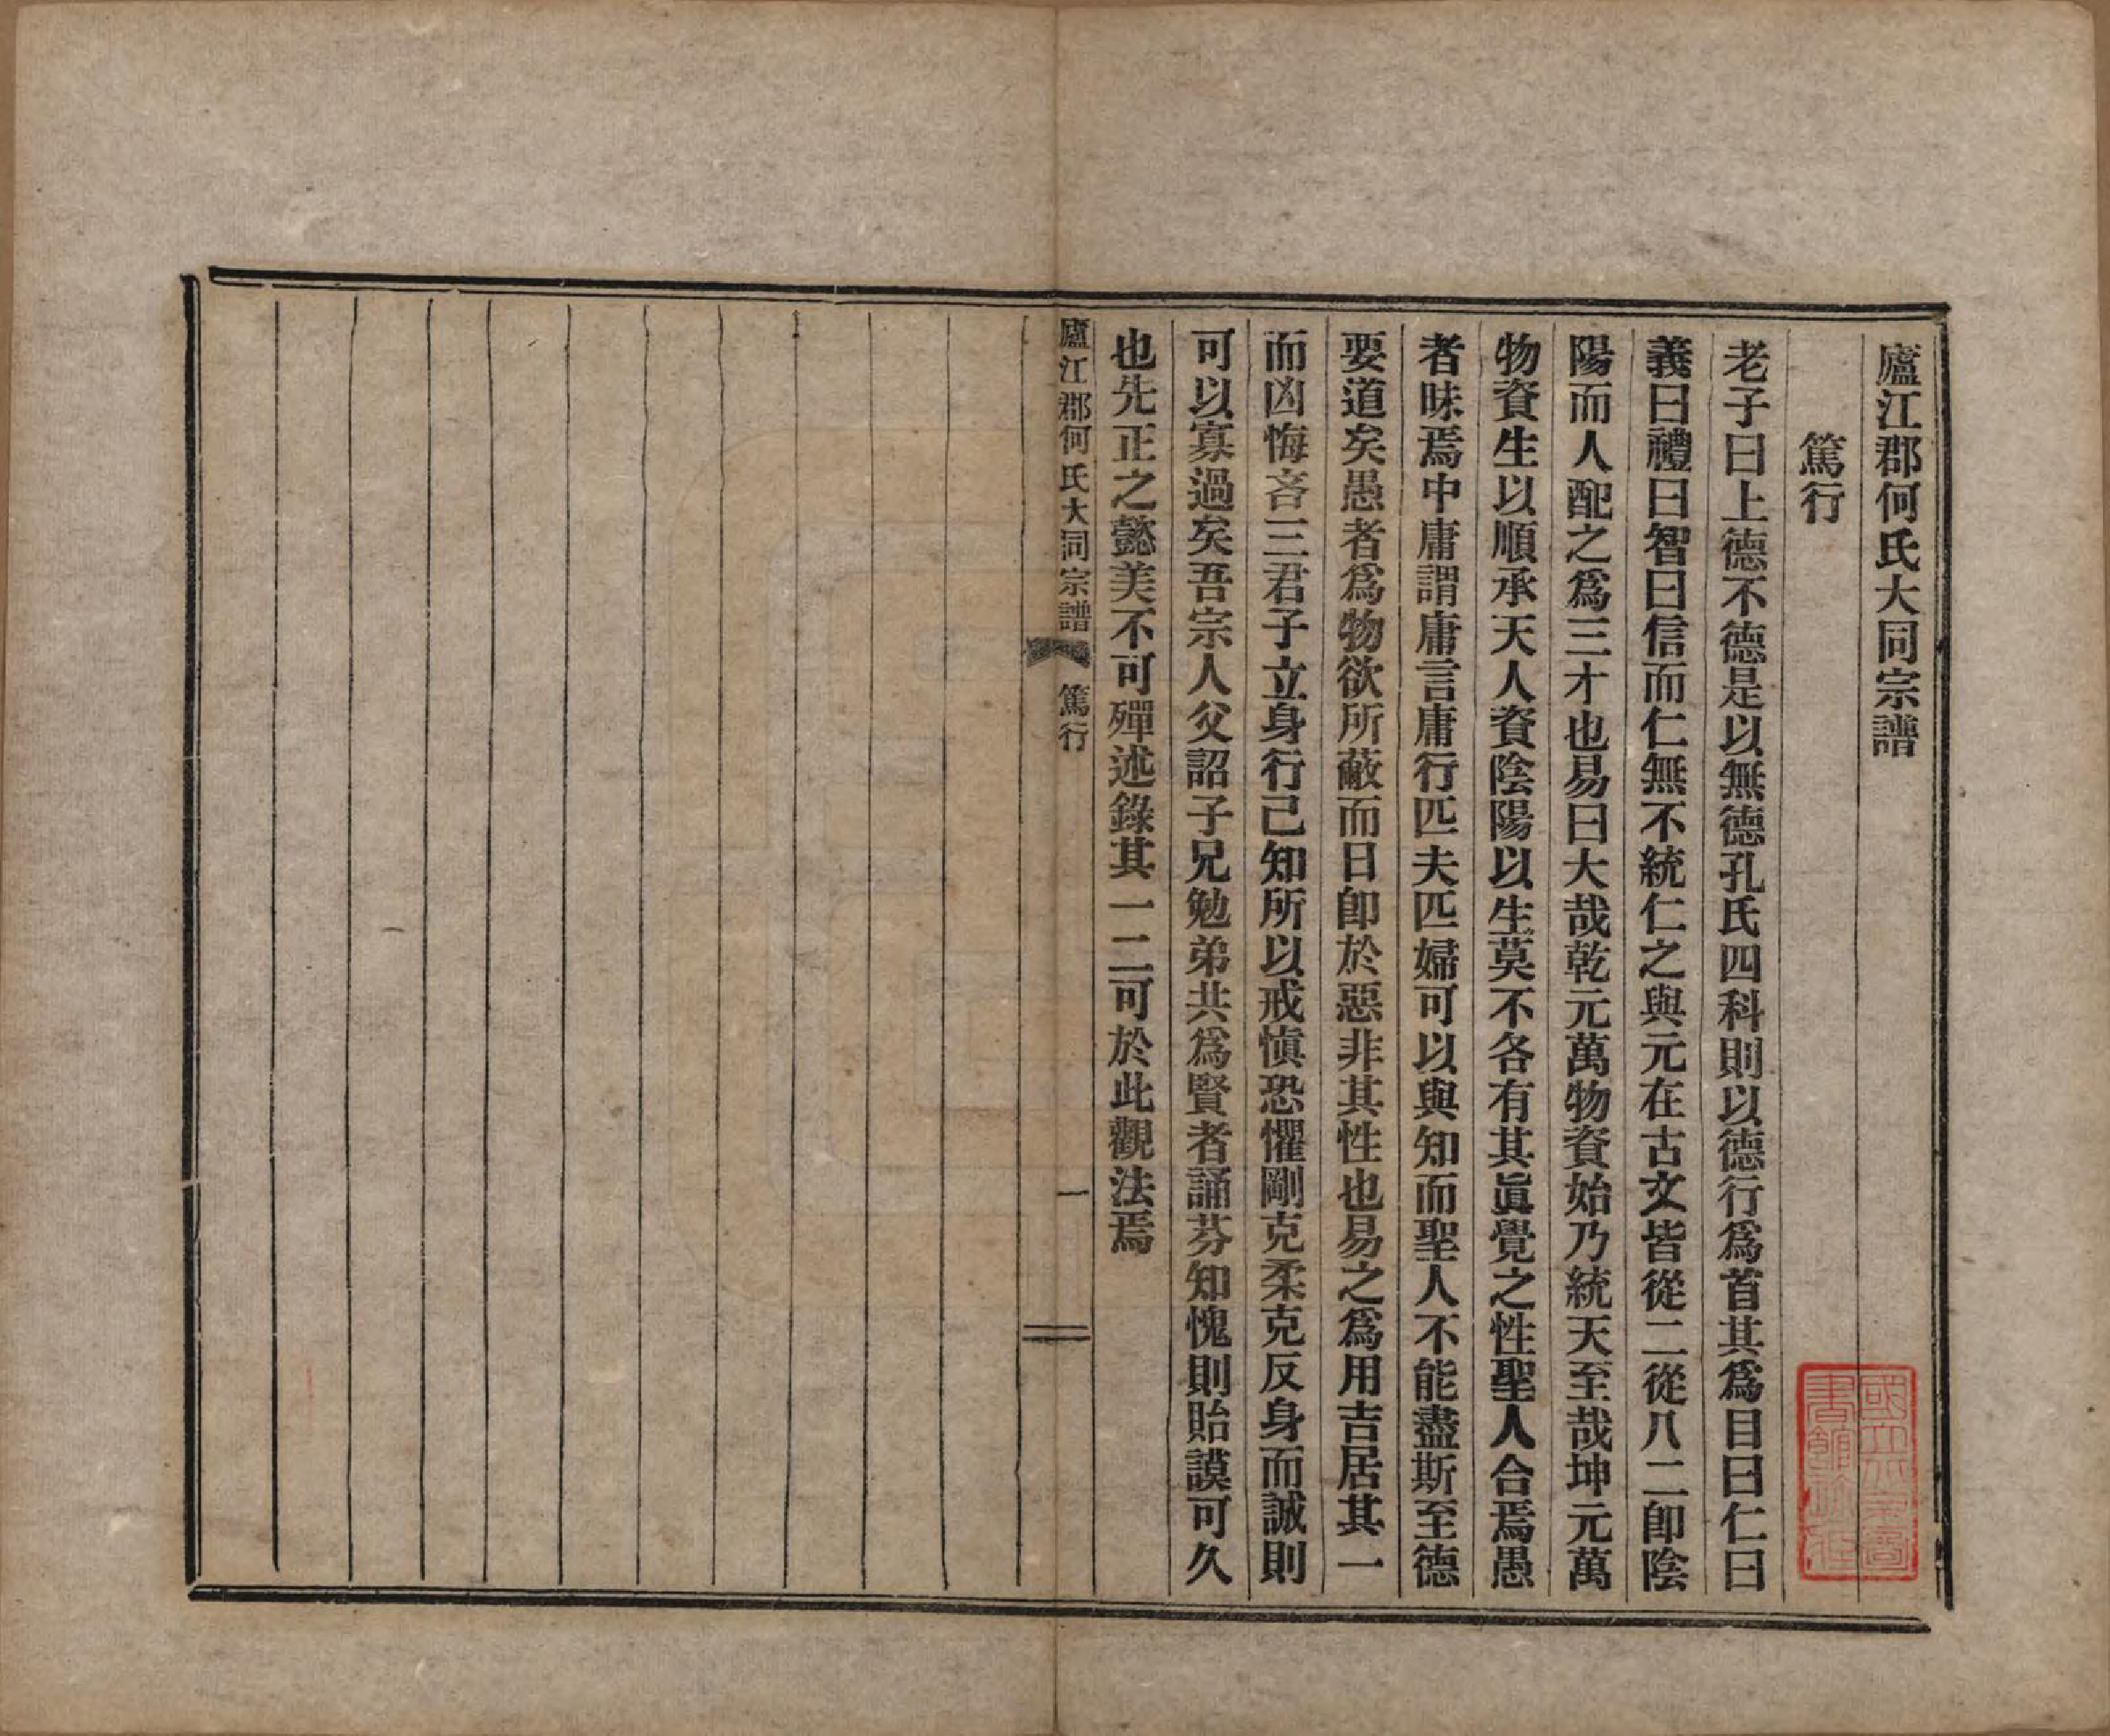 廬江郡何氏大同宗譜
篤行
老子曰上德不德是以無德孔氏四科則以德行爲首其爲目曰仁曰
義曰禮曰智曰信而仁無不統仁之與元在古文皆從二從八二卽陰
陽而人配之爲三才也易曰大哉乾元萬物資始乃統天至哉坤元萬
物資生以順承天人資陰陽以生莫不各有其眞覺之性聖人合焉愚
者昧焉中庸謂庸言庸行匹夫匹婦可以與知而聖人不能盡斯至德
要道矣愚者爲物欲所蔽而日卽於惡非其性也易之爲用吉居其一
而凶悔吝三君子立身行己知所以戒愼恐懼剛克柔克反身而誠則
可以寡過矣吾宗人父詔子兄勉弟共爲賢者誦芬知愧則貽謨可久
也先正之懿美不可殫述錄其一二可於此觀法焉
廬江郡何氏大同宗譜 篤行 一
國立北平圖
書館珍藏